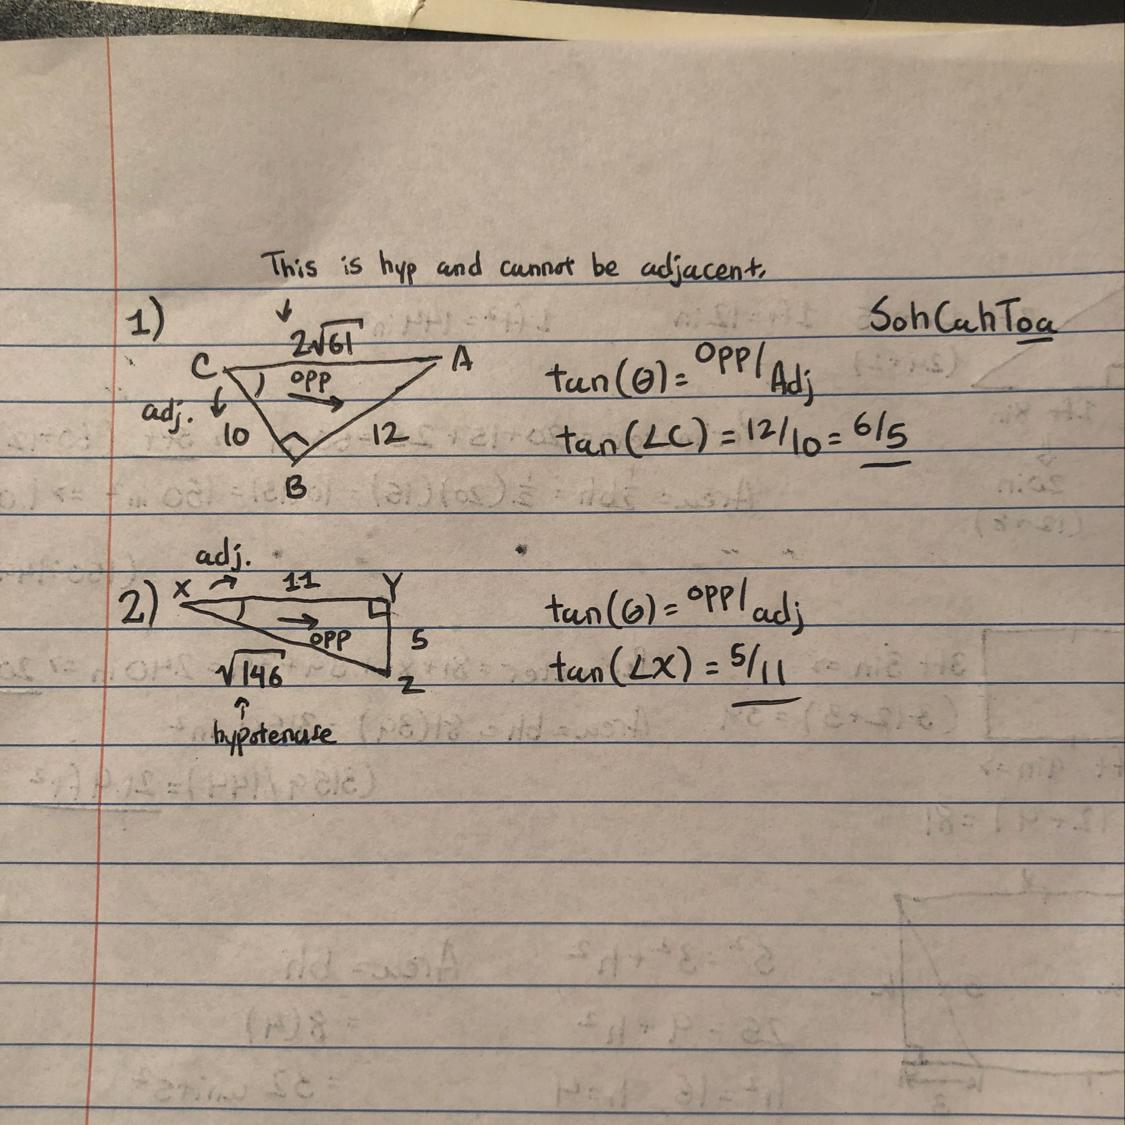 This is hyp and cannot be adjacent.
1)
↓
2√61
C
A
opp
→
adj. ↓
10
12
B
SohCahToa
tan(θ) = opp/Adj
tan(∠C) = 12/10 = 6/5
2)
adj.
X → 11 Y
→
opp
5
√146
Z
↑
hypotenuse
tan(θ) = opp/adj
tan(∠X) = 5/11